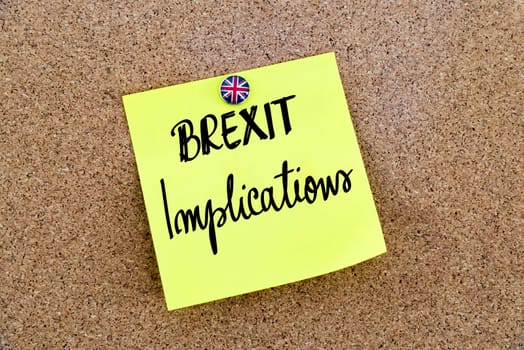 BREXIT
Implications